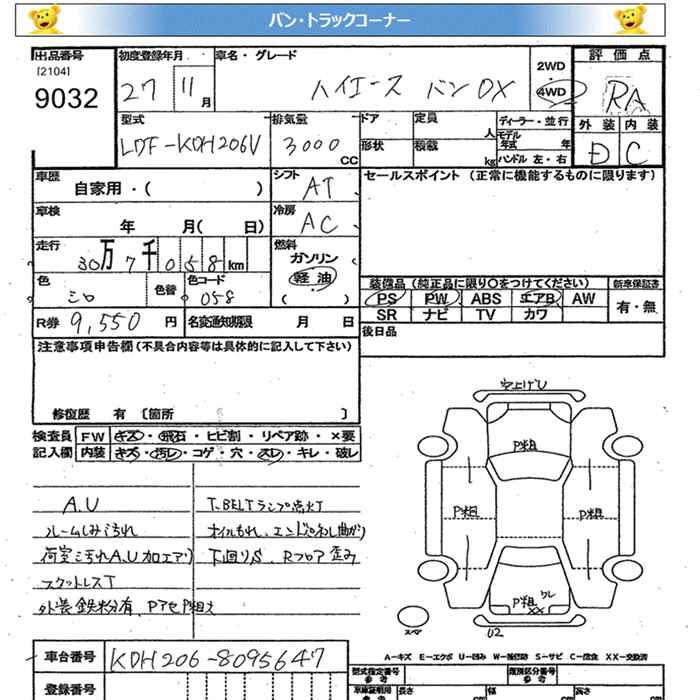 バン・トラックコーナー
出品番号 初度登録年月 車名・グレード 評価点
[2104]
9032
27 11月 ハイエース バン DX 2WD 4WD RA
型式 排気量 ドア 定員 人 ディーラー・並行 外装 内装
LDF-KDH206V 3000 CC 形状 積載 kg モデル年式 年 ハンドル 左・右 D C
車歴 シフト セールスポイント(正常に機能するものに限ります)
自家用・( ) AT
車検 冷房
年 月( 日) AC
走行 燃料
30万7千058km ガソリン
色 色替 色コード 軽油 装備品(純正品に限り○をつけてください) 新車保証書
シロ 058 ( ) PS PW ABS エアB AW 有・無
SR ナビ TV カワ
R券 9,550円 名変通知期限 月 日 後日品
注意事項申告欄(不具合内容等は具体的に記入して下さい)
修復歴 有 〔箇所 〕
検査員 FW キズ・飛石・ヒビ割・リペア跡・×要
記入欄 内装 キズ・汚レ・コゲ・穴・スレ・キレ・破レ
A.U T-BELTランプ点灯
ルームしみ汚れ オイルもれ、エンドパネル曲がり
荷室汚れA.U加エアリ 下回りS、Rフロア歪み
スカットレスT
外装鉄粉有、Pアセ P粗え
空上げU
P粗
P粗 P粗
P粗 ワレ
XX
スペア U2
A-キズ E-エクボ U-凹み W-補修跡 S-サビ C-腐食 XX-交換済
車台番号 KDH206-8095647
型式指定番号 参考 類別区分番号 参考
登録番号 車庫証明用 参考 長さ cm 幅 cm 高さ cm